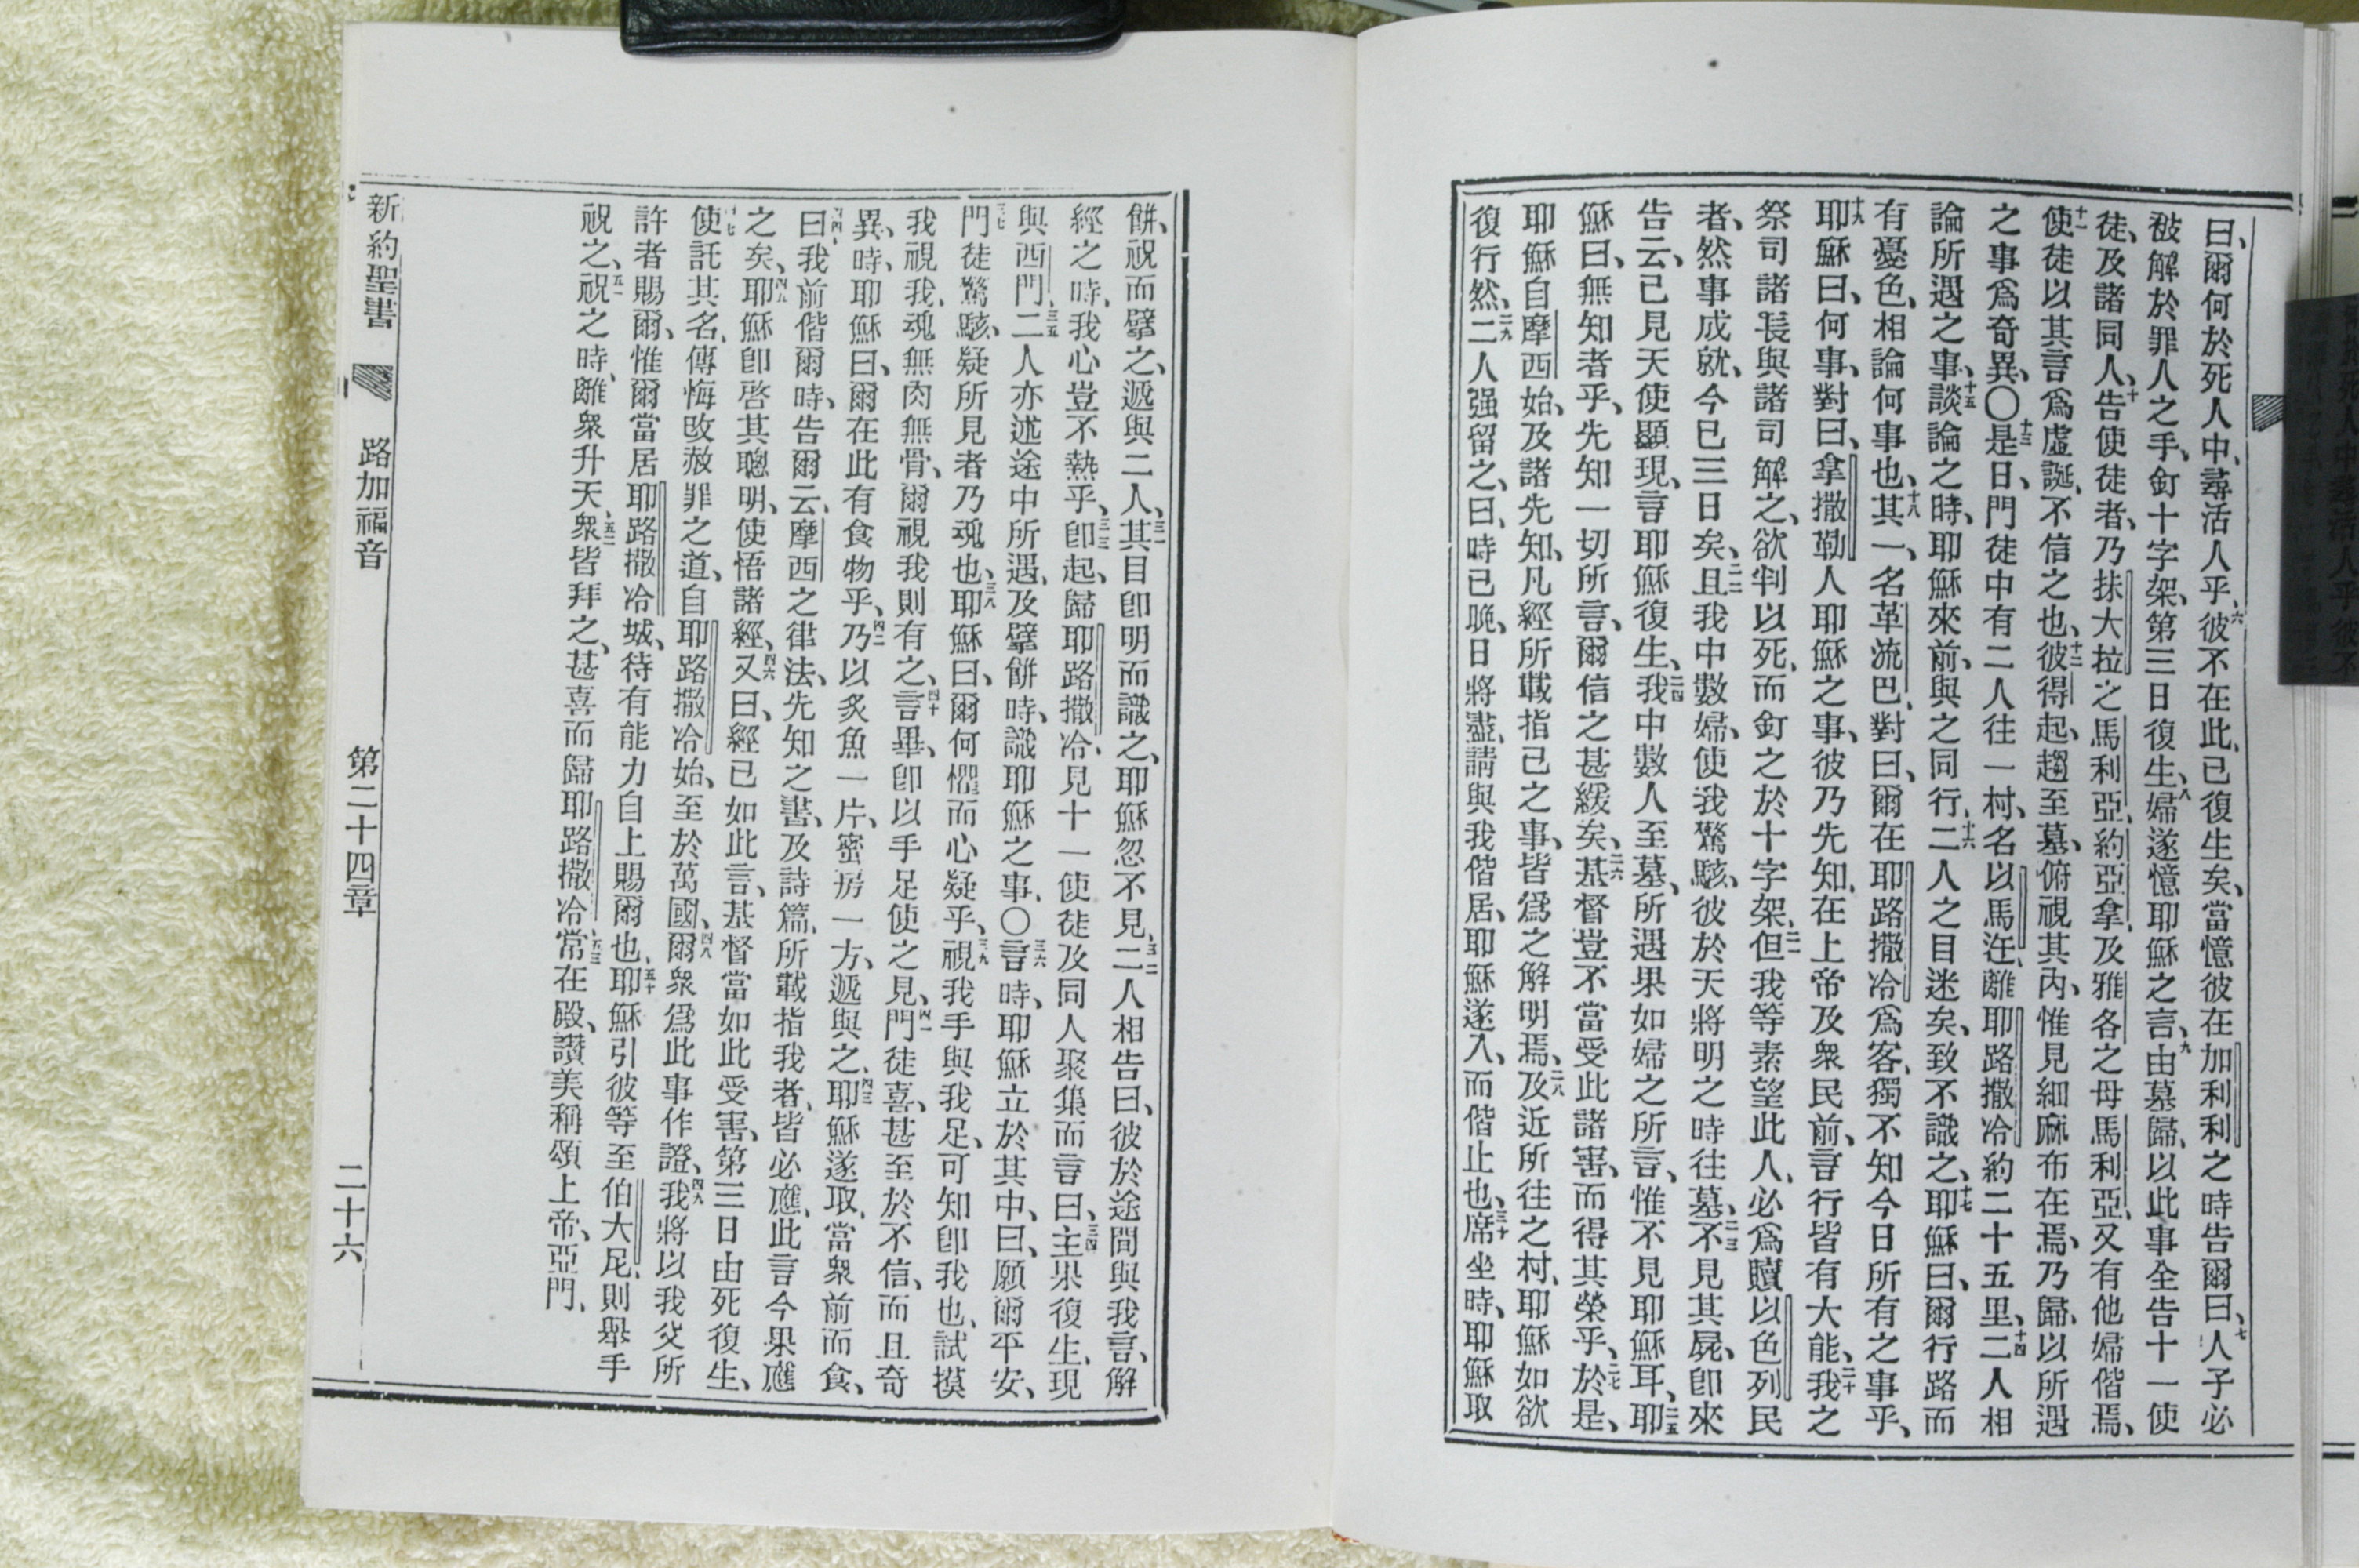 曰、爾何於死人中、尋活人乎、六彼不在此、已復生矣、當憶彼在加利利之時告爾曰、七人子必
被解於罪人之手、釘十字架、第三日復生、八婦遂憶耶穌之言、九由墓歸、以此事全告十一使
徒、及諸同人、十告使徒者、乃抹大拉之馬利亞、約亞拿、及雅各之母馬利亞、又有他婦偕焉、
十一使徒以其言爲虛誕、不信之也、十二彼得起、趨至墓、俯視其內、惟見細麻布在焉、乃歸、以所遇
之事爲奇異、〇十三是日、門徒中有二人往一村、名以馬迕、離耶路撒冷約二十五里、十四二人相
論所遇之事、十五談論之時、耶穌來前、與之同行、十六二人之目迷矣、致不識之、十七耶穌曰、爾行路而
有憂色、相論何事也、十八其一、名革流巴、對曰、爾在耶路撒冷爲客、獨不知今日所有之事乎、
十九耶穌曰、何事、對曰、拿撒勒人耶穌之事、彼乃先知、在上帝及衆民前、言行皆有大能、二十我之
祭司諸長與諸司解之、欲判以死、而釘之於十字架、二一但我等素望此人、必爲贖以色列民
者、然事成就、今已三日矣、二二且我中數婦、使我驚駭、彼於天將明之時往墓、二三不見其屍、卽來
告云、已見天使顯現、言耶穌復生、二四我中數人至墓、所遇果如婦之所言、惟不見耶穌耳、二五耶
穌曰、無知者乎、先知一切所言、爾信之甚緩矣、二六基督豈不當受此諸害、而得其榮乎、二七於是、
耶穌自摩西始、及諸先知、凡經所載指己之事、皆爲之解明焉、二八及近所往之村、耶穌如欲
復行然、二九二人强留之、曰、時已晚、日將盡、請與我偕居、耶穌遂入、而偕止也、三十席坐時、耶穌取
餅、祝而擘之、遞與二人、三一其目卽明而識之、耶穌忽不見、三二二人相告曰、彼於途間與我言、解
經之時、我心豈不熱乎、三三卽起、歸耶路撒冷、見十一使徒及同人聚集而言曰、三四主果復生、現
與西門、三五二人亦述途中所遇、及擘餅時、識耶穌之事、〇三六言時、耶穌立於其中、曰、願爾平安、
三七門徒驚駭、疑所見者乃魂也、三八耶穌曰、爾何懼而心疑乎、三九視我手與我足、可知卽我也、試摸
我視我、魂無肉無骨、爾視我則有之、四十言畢、卽以手足使之見、四一門徒喜、甚至於不信、而且奇
異、時、耶穌曰、爾在此有食物乎、四二乃以炙魚一片、蜜房一方、遞與之、四三耶穌遂取、當衆前而食、
四四曰、我前偕爾時、告爾云、摩西之律法、先知之書、及詩篇、所載指我者、皆必應、此言今果應
之矣、四五耶穌卽啓其聰明、使悟諸經、四六又曰、經已如此言、基督當如此受害、第三日由死復生、
四七使託其名、傳悔改赦罪之道、自耶路撒冷始、至於萬國、四八爾衆爲此事作證、四九我將以我父所
許者賜爾、惟爾當居耶路撒冷城、待有能力自上賜爾也、五十耶穌引彼等至伯大尼、則舉手
祝之、五一祝之時、離衆升天、五二衆皆拜之、甚喜而歸耶路撒冷、五三常在殿、讃美稱頌上帝、亞門、
新約聖書 路加福音 第二十四章 二十六